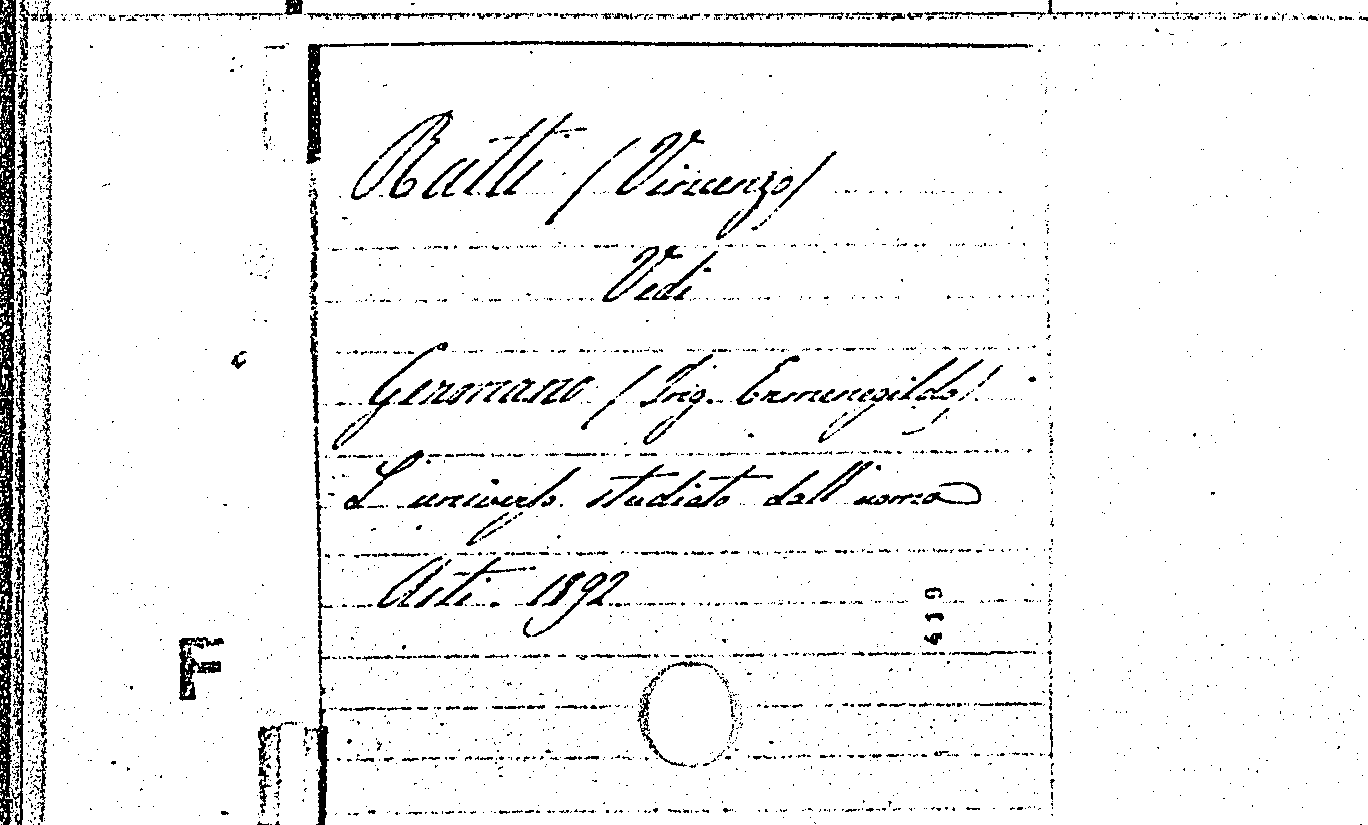 Ratti (Vincenzo)
Vedi
Geromano (Ing. Ermenegildo)
L'universo studiato dall'uomo
Asti. 1892
419
F